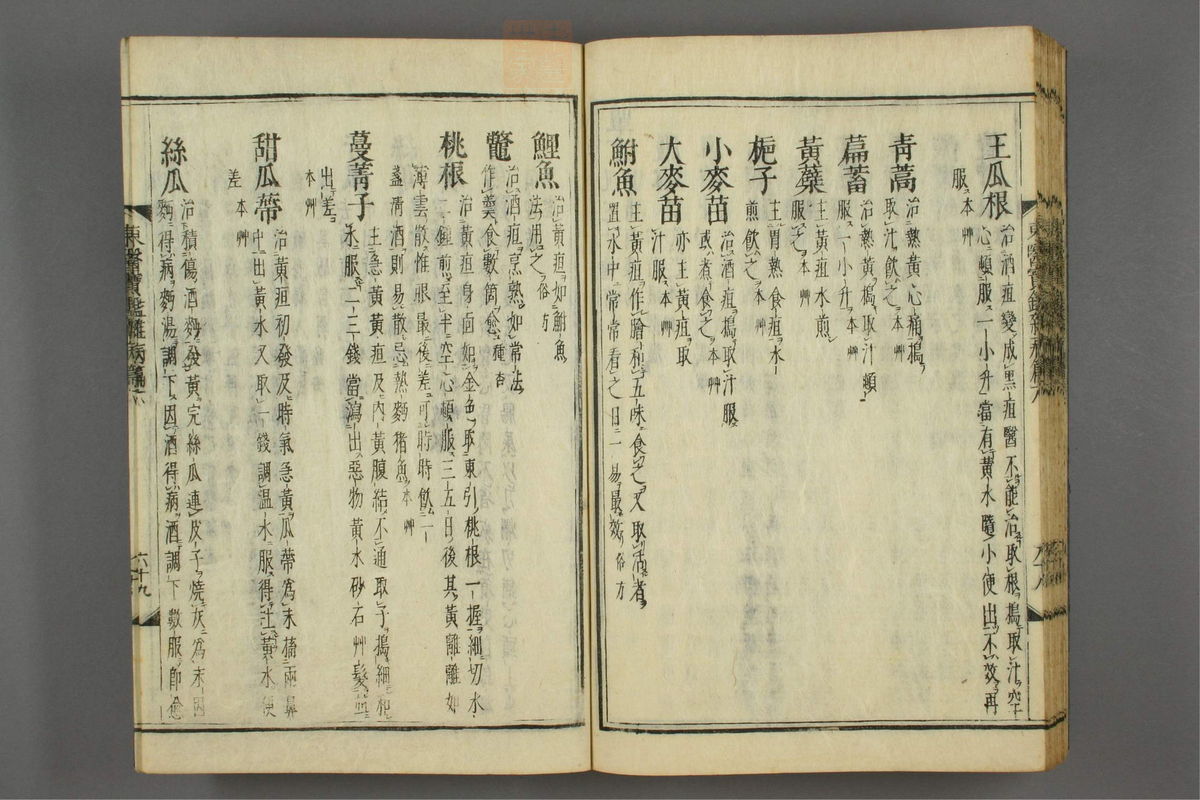 王瓜根
治酒疸變成黒疸醫不能治取根搗取汁空
心頓服一小升當有黄水隨小便出不效再
服本艸
青蒿
治熱黄心痛搗
取汁飮之本艸
萹蓄
治熱黄搗取汁頓
服一小升本艸
黄蘗
主黄疸水煎
服之本艸
梔子
主胃熱食疸水
煎飮之本艸
小麥苗
治酒疸搗取汁服
或煮食之本艸
大麥苗
亦主黄疸取
汁服本艸
鮒魚
主黄疸作膾和五味食之又取活者
置水中常常看之日二易最效俗方
鯉魚
治黄疸如鮒魚
法用之俗方
鼈
治酒疸烹熟如常法
作羹食數箇愈種杏
桃根
治黄疸身面如金色取東引桃根一握細切水
二鍾煎至半空心頓服三五日後其黄離離如
薄雲散惟眼最後差可時時飮一
盞淸酒則易散忌熱麪猪魚本艸
蔓菁子
主急黄黄疸及内黄腹結不通取子搗細和
水服二三錢當瀉出惡物黄水砂石艸髮並
出差
本艸
甜瓜蔕
治黄疸初發及時氣急黄瓜蔕爲末搐兩鼻
中出黄水又取一錢調温水服得吐黄水便
差本艸
絲瓜
治積傷酒麪發黄完絲瓜連皮子燒灰爲末因
麪得病麪湯調下因酒得病酒調下數服卽愈
東醫寶鑑雜病篇
六十九